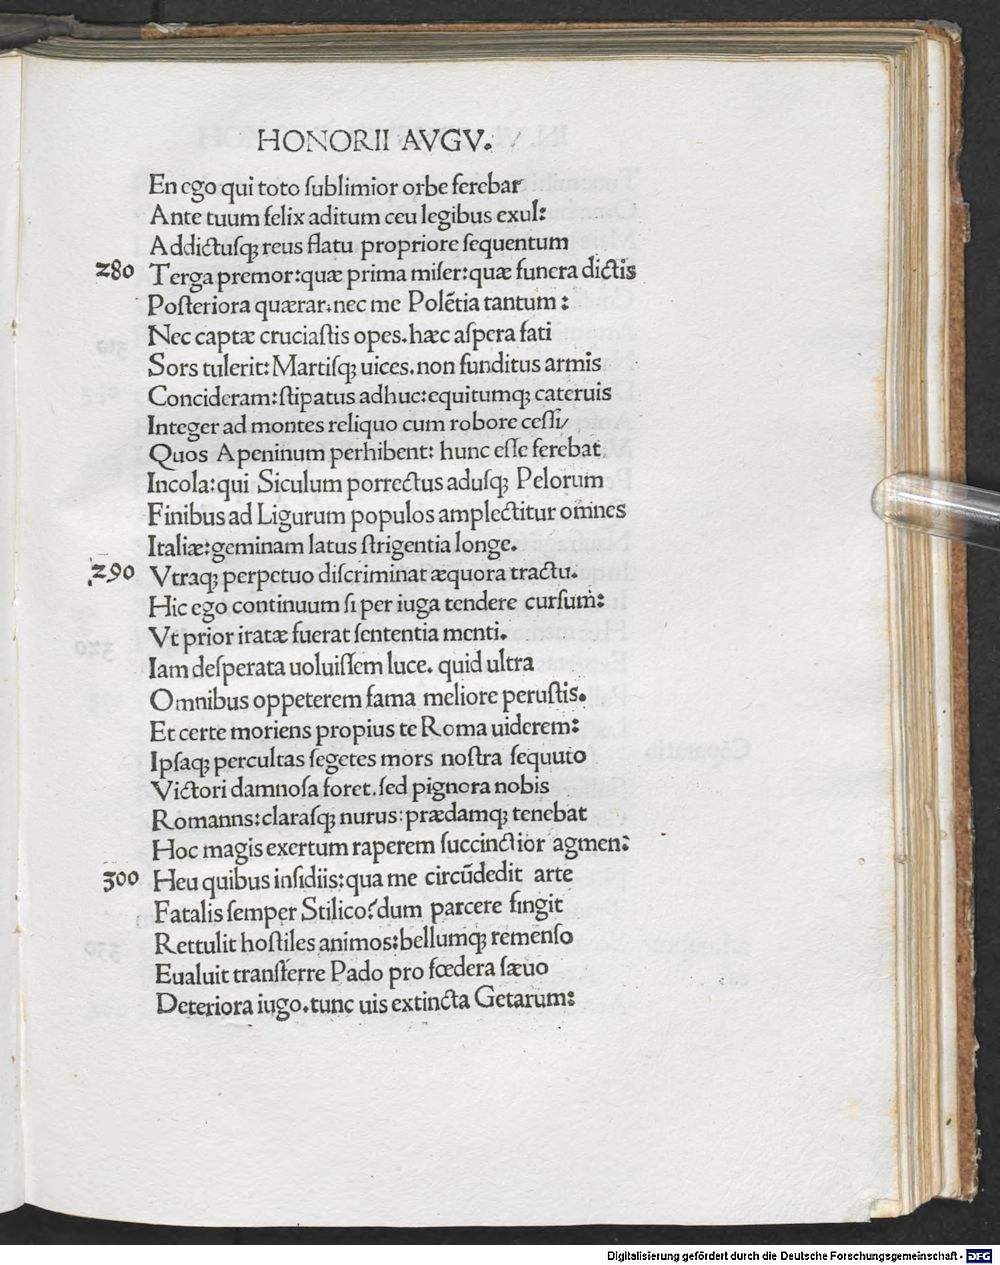 HONORII AVGV.
En ego qui toto ſublimior orbe ferebar
Ante tuum felix aditum ceu legibus exul:
Addictuſqꝫ reus flatu propriore ſequentum
280 Terga premor: quæ prima miſer: quæ funera dictis
Poſteriora quærar. nec me Polẽtia tantum:
Nec captæ cruciaſtis opes. hæc aſpera fati
Sors tulerit: Martiſqꝫ uices. non funditus armis
Concideram: ſtipatus adhuc: equitumqꝫ cateruis
Integer ad montes reliquo cum robore ceſſi/
Quos Apeninum perhibent: hunc eſſe ferebat
Incola: qui Siculum porrectus aduſqꝫ Pelorum
Finibus ad Ligurum populos amplectitur om̃nes
Italiæ: geminam latus ſtrigentia longe.
290 Vtraqꝫ perpetuo diſcriminat æquora tractu.
Hic ego continuum ſi per iuga tendere curſum:
Vt prior iratæ fuerat ſententia menti.
Iam deſperata uoluiſſem luce. quid ultra
Omnibus oppeterem fama meliore peruſtis.
Et certe moriens propius te Roma uiderem:
Ipſaqꝫ percultas ſegetes mors noſtra ſequuto
Victori damnoſa foret. ſed pignora nobis
Romanns: claraſqꝫ nurus: prædamqꝫ tenebat
Hoc magis exertum raperem ſuccinctior agmen:
300 Heu quibus inſidiis: qua me circũdedit arte
Fatalis ſemper Stilico? dum parcere fingit
Rettulit hoſtiles animos: bellumqꝫ remenſo
Eualuit tranſferre Pado pro fœdera ſæuo
Deteriora iugo. tunc uis extincta Getarum:
Digitalisierung gefördert durch die Deutsche Forschungsgemeinschaft - DFG